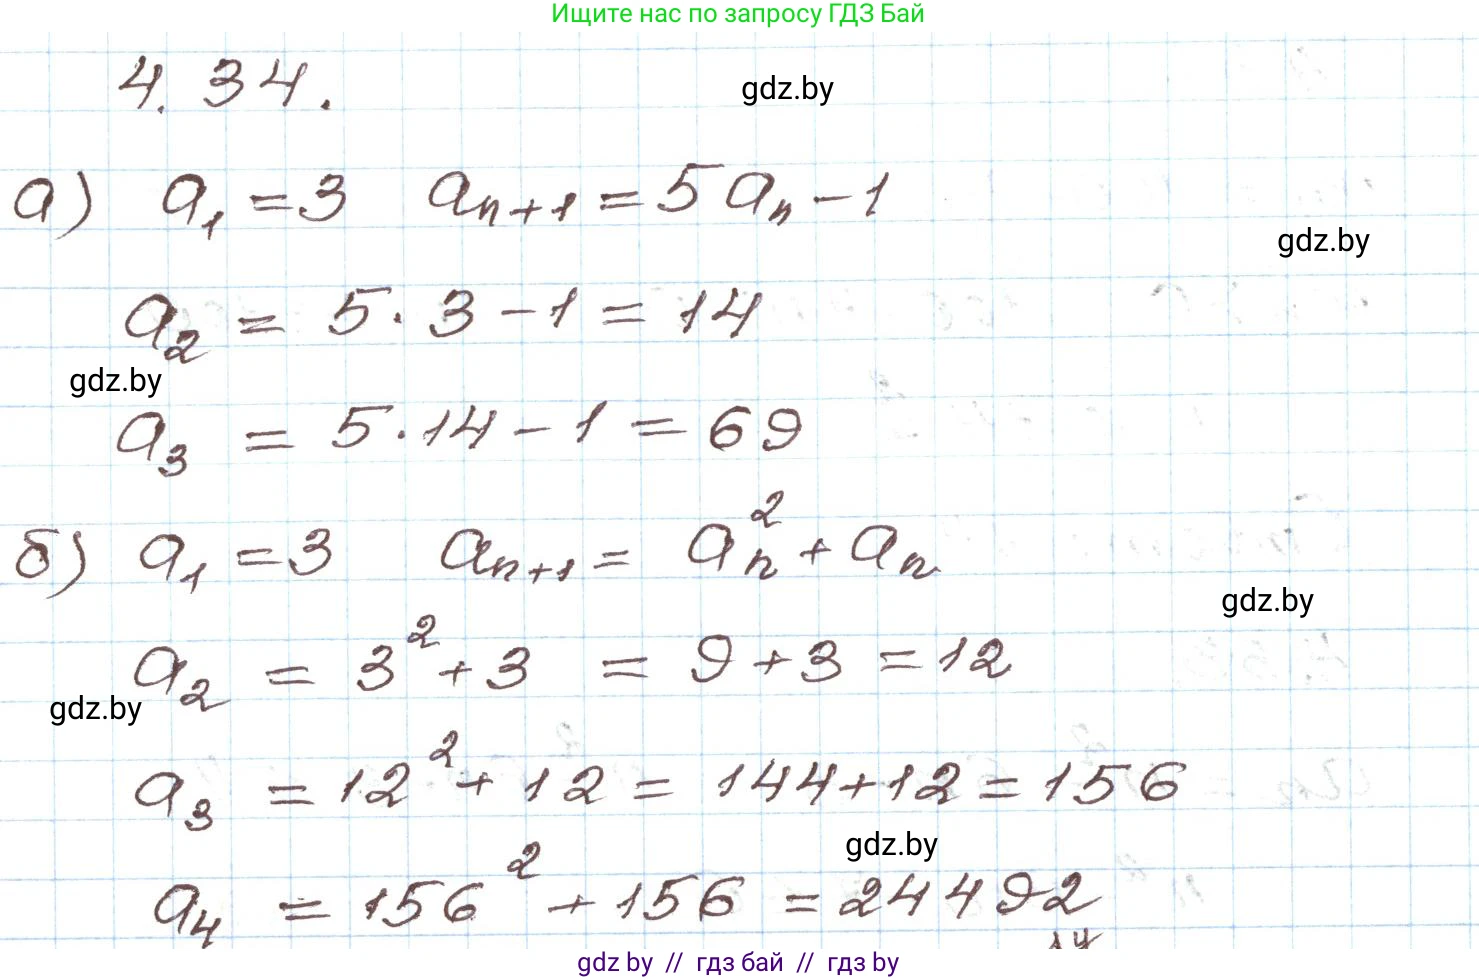 Ищите нас по запросу ГДЗ Бай
4.34.
gdz.by
а) a₁ = 3 aₙ₊₁ = 5aₙ − 1
gdz.by
a₂ = 5 · 3 − 1 = 14
gdz.by
a₃ = 5 · 14 − 1 = 69
б) a₁ = 3 aₙ₊₁ = aₙ² + aₙ
gdz.by
a₂ = 3² + 3 = 9 + 3 = 12
gdz.by
a₃ = 12² + 12 = 144 + 12 = 156
gdz.by
a₄ = 156² + 156 = 24492
gdz.by // гдз бай // гдз by